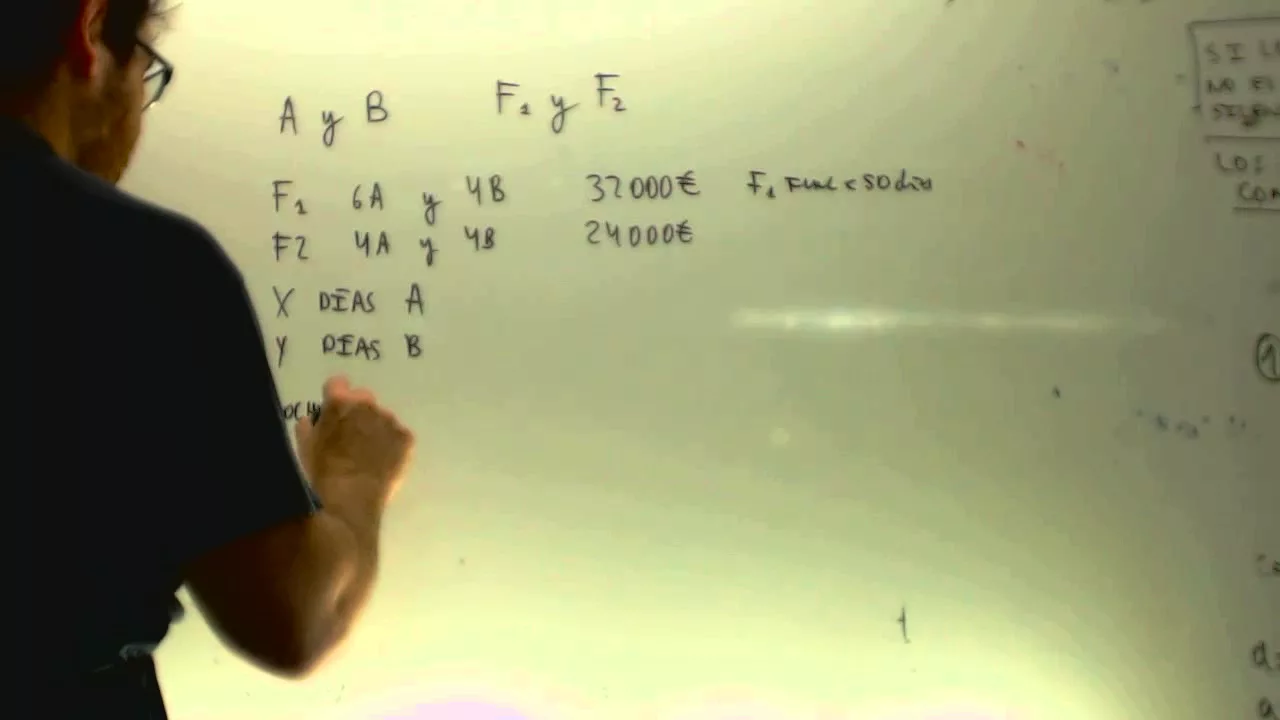 A y B F1 y F2
F1 6A y 4B 32000€ F1 50 dias
F2 4A y 4B 24000€
X DÍAS A
Y DÍAS B
SI
NO ES
LOS
CON
1